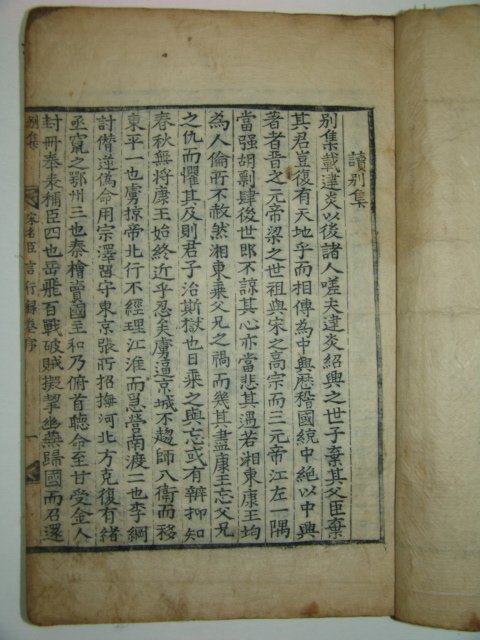 讀别集
别集載建炎以後諸人嗟夫建炎紹興之世子棄其父臣棄
其君豈復有天地乎而相傳為中興歷稽國統中絶以中興
著者晋之元帝梁之世祖與宋之高宗而三元帝江左一隅
當强胡剿肆後世郎不諒其心亦當悲其遇若湘東康王均
為人倫所不赦然湘東乗父兄之禍而幾其盡康王忘父兄
之仇而懼其反則君子治斯獄也曰乗之與忘或有辨抑知
春秋無將康王始終近乎忍矣虜逼京城不趨師入衛而移
東平一也虜掠帝北行不經理江淮而急營南渡二也李綱
討僣逆偽命用宗澤畱守東京張所招撫河北方克復有緒
丞竄之鄂州三也秦檜賣國主和乃俯首聴命至甘受金人
封冊奉表稱臣四也岳飛百戰破賊擬挈幽燕歸國而召還
别集 宋名臣言行録卷序 一